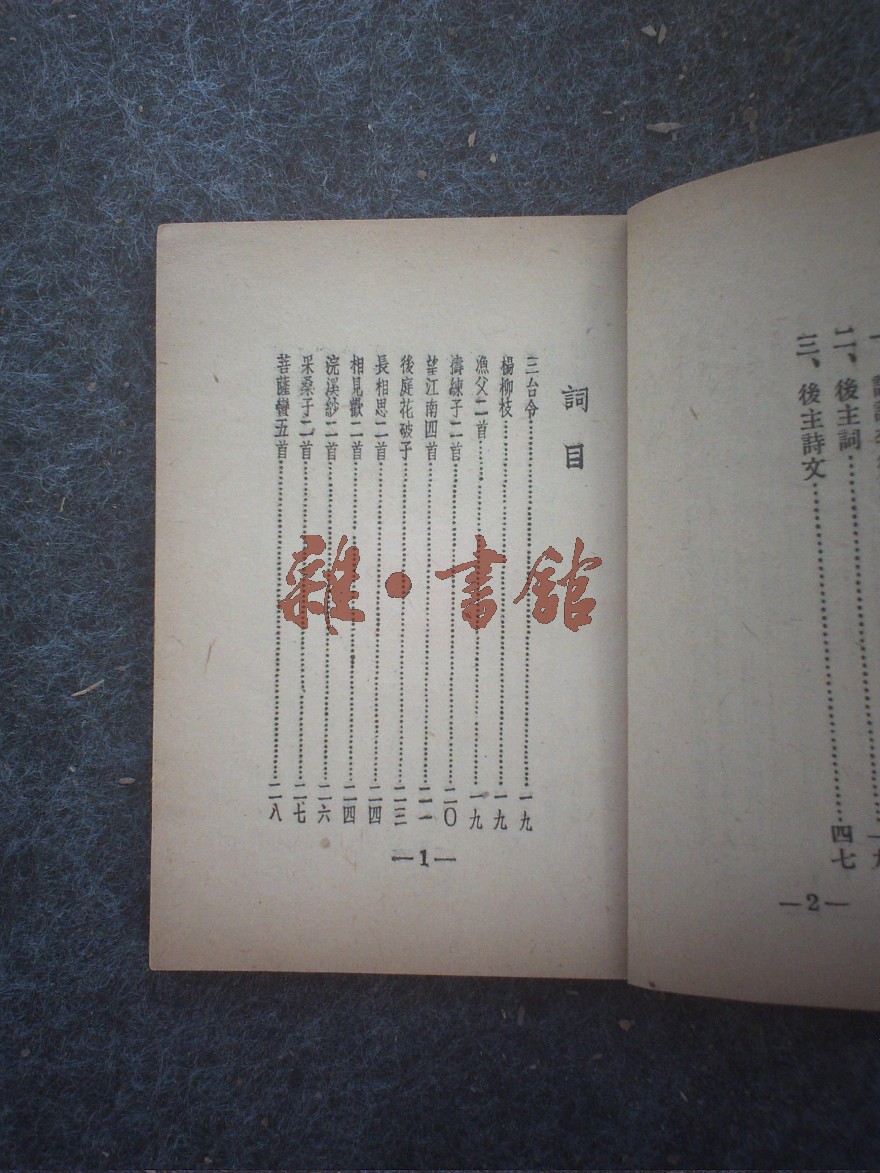 二、後主詞………四七
三、後主詩文………
—2—
詞目
三台令………一九
楊柳枝………一九
漁父二首………一九
擣練子二首………二〇
望江南四首………二一
後庭花破子………二三
長相思二首………二四
相見歡二首………二四
浣溪紗二首………二六
采桑子二首………二七
菩薩蠻五首………二八
—1—
雜·書館